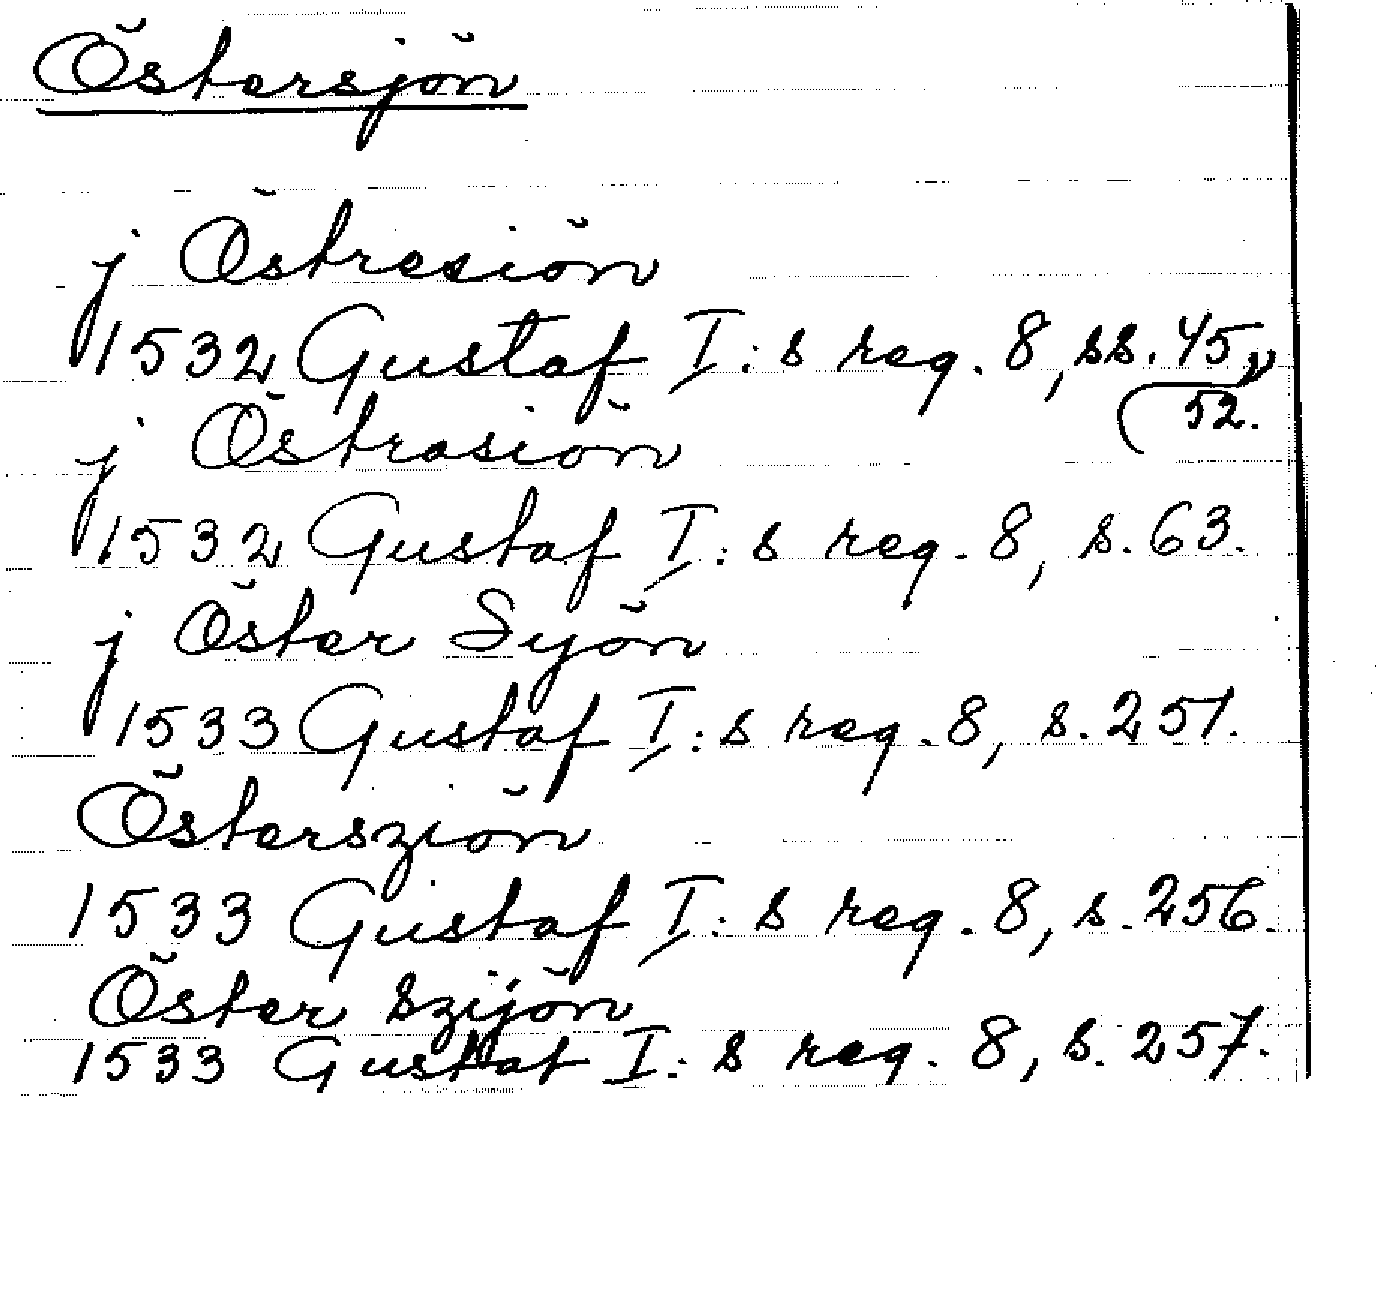 Östersjön
j Östresiön
1532 Gustaf I:s reg. 8, ss. 45,
52.
j Östrasiön
1532 Gustaf I:s reg. 8, s. 63.
j Öster Syön
1533 Gustaf I:s reg. 8, s. 251.
Östersziön
1533 Gustaf I:s reg. 8, s. 256.
Öster szijön
1533 Gustaf I:s reg. 8, s. 257.